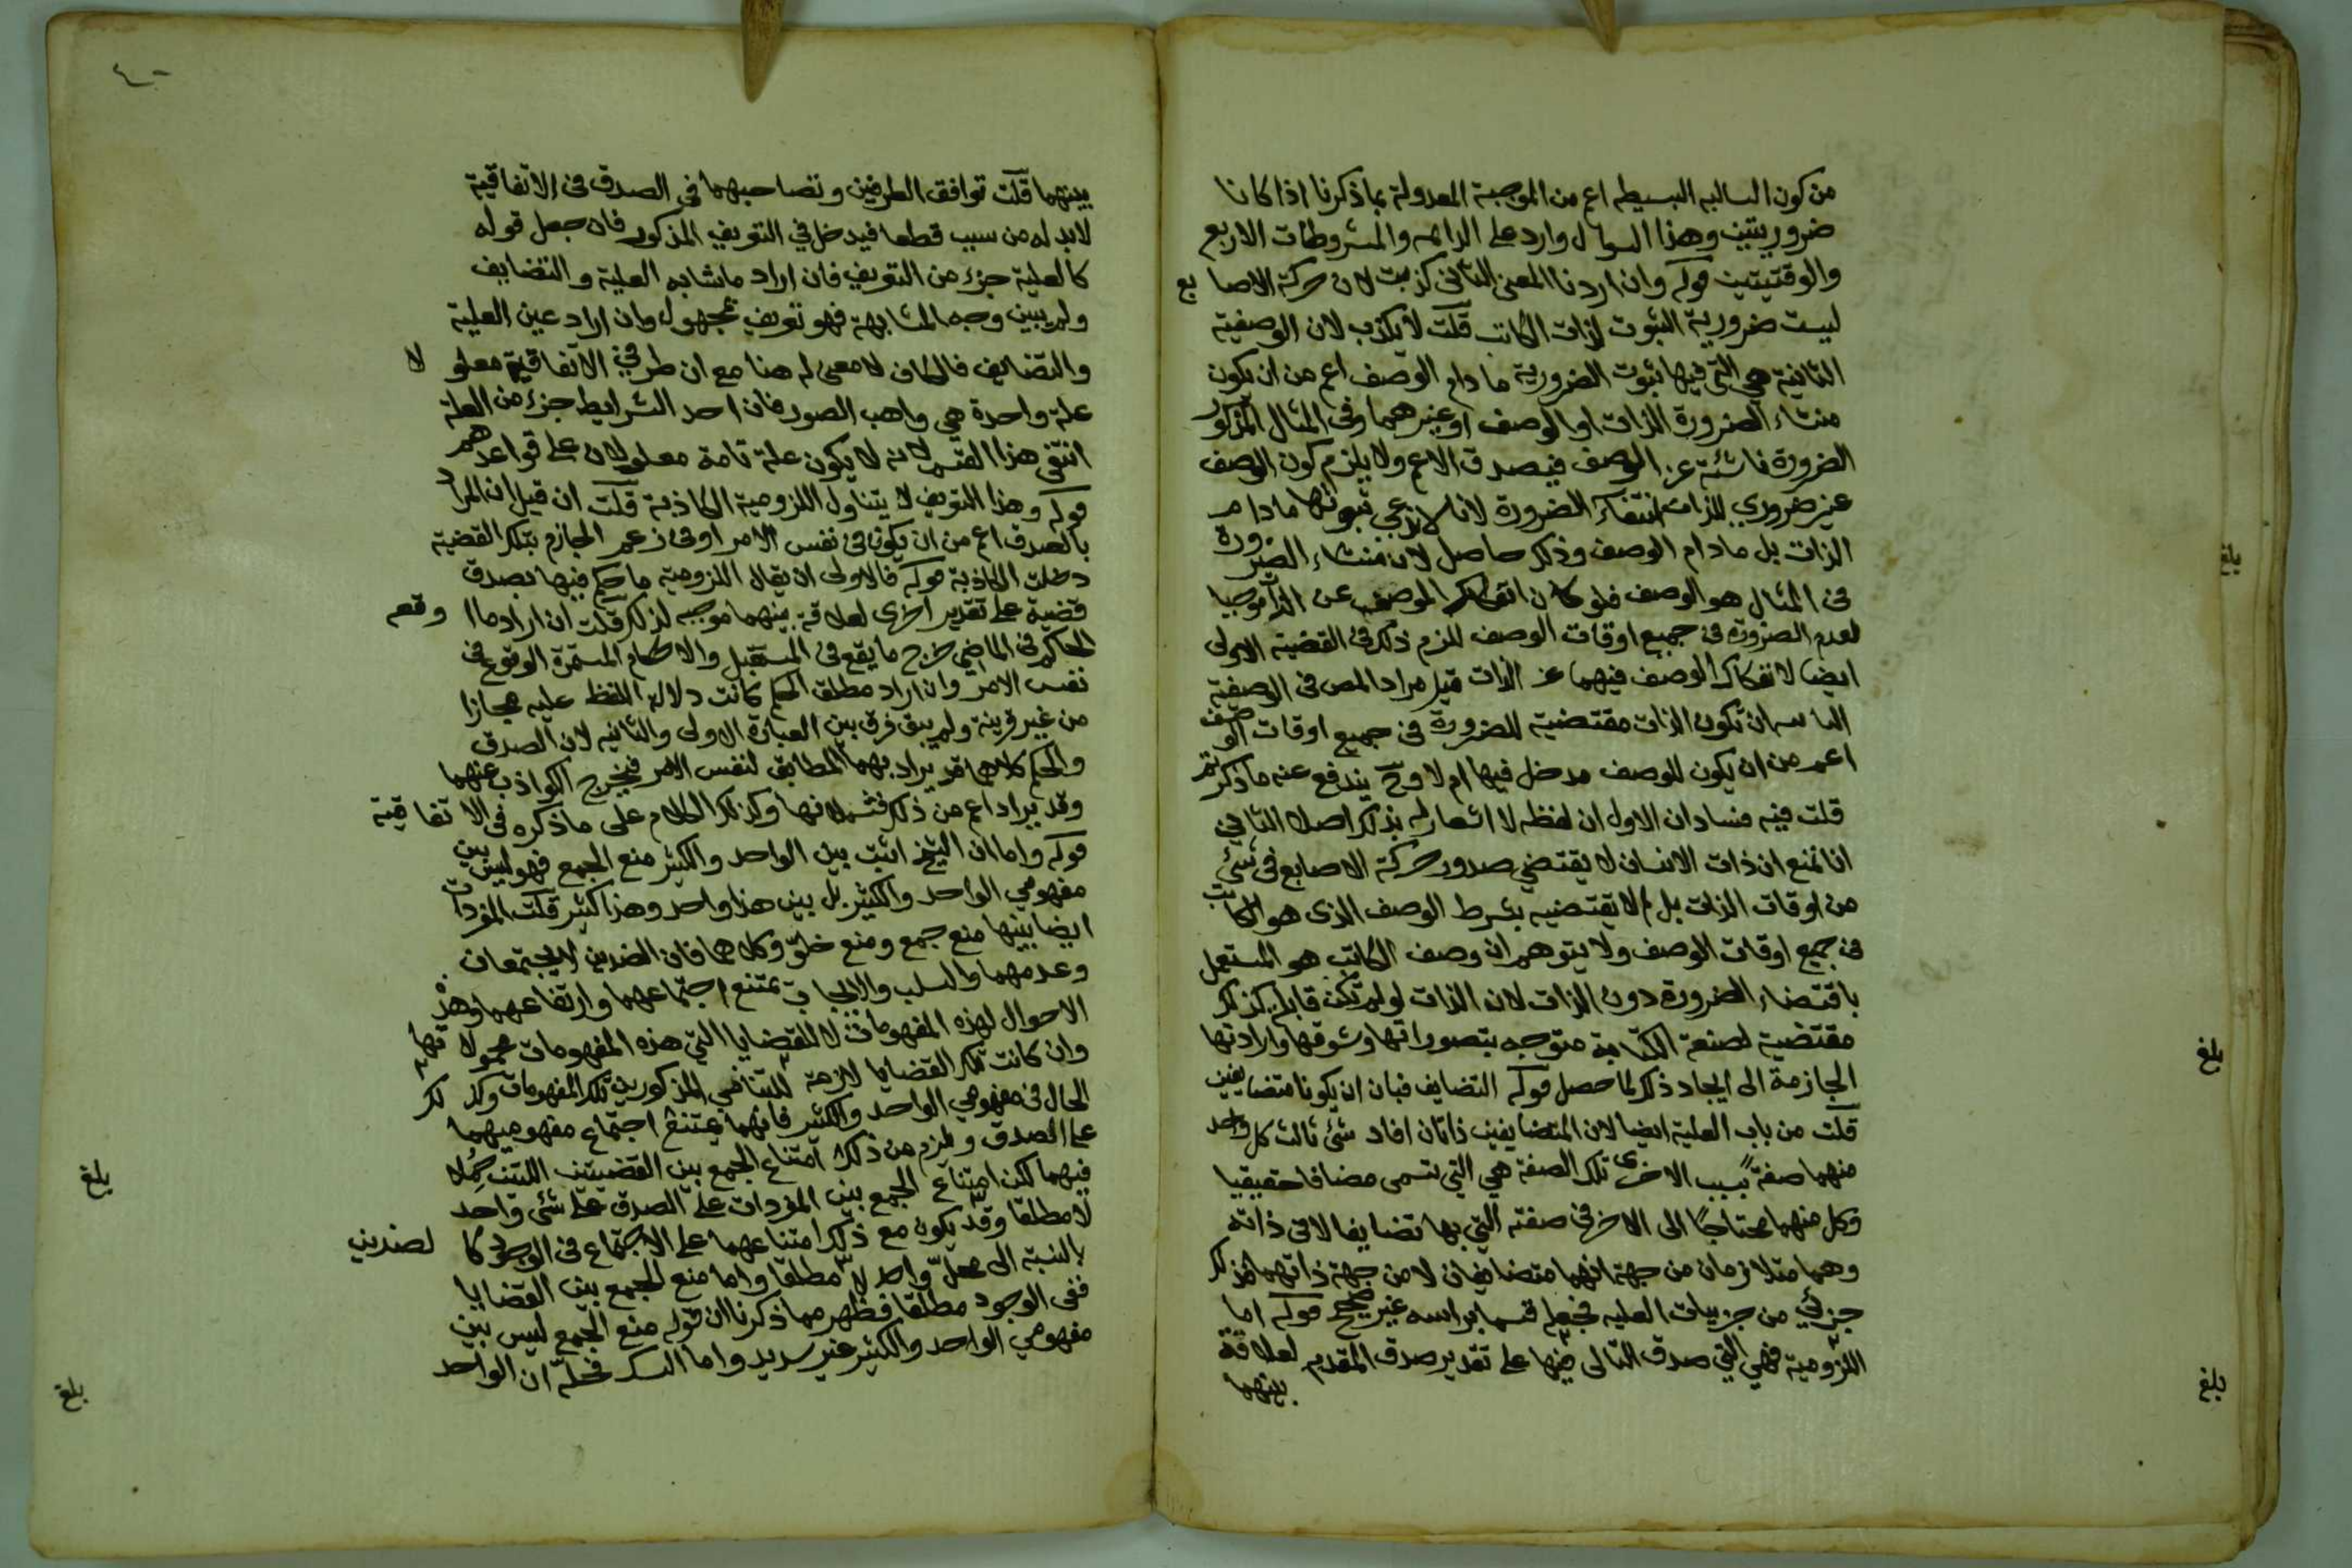 من كون السالبه البسيطه اعم من الموجبة المعدولة بما ذكرنا اذا كانا
ضروريتين وهذا السوال وارد على الدائمه والمشروطات الاربع
والوقتيتين قوله وان اردنا المعنى الثانى كذبت لان حركة الاصابع
ليست ضرورية الثبوت لذات الكاتب قلت لا يكذب لان الوصفية
الثانية هي التى فيها ثبوت الضرورية ما دام الوصف اعم من ان يكون
منشاء الضرورة الذات او الوصف او غيرهما وفى المثال المذكور
الضرورة ناشئة عن الوصف فيصدق الاعم ولا يلزم كون الوصف
غير ضروري للذات انتفاء الضرورة لانا لا ندعي ثبوتها ما دام
الذات بل ما دام الوصف وذلك حاصل لان منشاء الضرورة
فى المثال هو الوصف فلو كان انفكاك الوصف عن الذات موجبا
لعدم الضرورة فى جميع اوقات الوصف للزم ذلك فى القضية الاولى
ايضا لانفكاك الوصف فيهما عن الذات قيل مراد المص فى الوصفية
الثانيه ان تكون الذات مقتضية للضرورة فى جميع اوقات الوصف
اعم من ان يكون للوصف مدخل فيها ام لا وح يندفع عنه ما ذكرتم
قلت فيه فسادان الاول ان لفظه لا اشعار له بذلك اصلا الثاني
انا نمنع ان ذات الانسان لا يقتضي صدور حركة الاصابع فى شئ
من اوقات الذات بل لا يقتضيه بشرط الوصف الذى هو الكاتب
فى جميع اوقات الوصف ولا يتوهم ان وصف الكاتب هو المستعمل
باقتضاء الضرورة دون الذات لان الذات لو لم تكن قابلة كذلك
مقتضية لصنعة الكتابة متوجه بتصوراتها وشوقها وارادتها
الجازمة الى ايجاد ذلك لما حصل قوله التضايف فبان ان يكونا متضايفين
قلت من باب العلية ايضا لان المتضايفين ذاتان افاد شئ ثالث كل واحد
منهما صفة بسبب الاخرى تلك الصفة هي التي تسمى مضافا حقيقيا
وكل منهما محتاجا الى الاخر فى صفته التي بها تضايفا لا فى ذاته
وهما متلازمان من جهة انهما متضايفان لا من جهة ذاتهما فذلك
جزئي من جزييات العليه فجعله قسما براسه غير صحيح قوله اما
اللزومية فهي التي صدق التالى فيها على تقدير صدق المقدم لعلاقة
بينهما
بلغ
بلغ
بلغ
٤٠
بينهما قلت توافق الطرفين وتصاحبهما فى الصدق فى الاتفاقية
لابد له من سبب قطعا فيدخل في التعريف المذكور فان جعل قوله
كالعلية جزء من التعريف فان اراد ما شابه العلية والتضايف
ولم يبين وجه المشابهة فهو تعريف بمجهول وان اراد عين العلية
والتضايف فالكاف لا معنى له هنا مع ان طرفي الاتفاقية معلولا
علة واحدة هي واهب الصور فان احد الشرايط جزء من العلة
انتفى هذا القسم لانه لا يكون علة تامة معلولان على قواعدهم
قوله وهذا التعريف لا يتناول اللزومية الكاذبة قلت ان قيل ان المراد
بالصدق اعم من ان يكون فى نفس الامر او فى زعم الجازم بتلك القضية
دخلت الكاذبة قوله فالاولى ان يقال اللزومية ما حكم فيها بصدق
قضية على تقدير اخرى لعلاقة بينهما موجبه لذلك قلت ان اراد ما اوقع
الحاكم فى الماضي خرج ما يقع فى المستقبل والاحكام المستمرة الوقوع فى
نفس الامر وان اراد مطلق الحكم كانت دلالة اللفظ عليه مجازا
من غير قرينة ولم يبق فرق بين العبارة الاولى والثانيه لان الصدق
والحكم كلاهما قد يراد بهما المطابق لنفس الامر فيخرج الكواذب عنهما
وقد يراد اعم من ذلك فتشملانها وكذلك الكلام على ما ذكره فى الاتفاقية
قوله واما ان الشيخ اثبت بين الواحد والكثير منع الجمع فهو ليس بين
مفهومي الواحد والكثير بل بين هذا واحد وهذا كثير قلت المفردات
ايضا بينها منع جمع ومنع خلو وكلاهما فان الضدين لا يجتمعان
وعدمهما والسلب والايجاب يمتنع اجتماعهما وارتفاعهما وهذه
الاحوال لهذه المفهومات لا للقضايا التي هذه المفهومات محمولاتها
وان كانت تلك القضايا لازمة للتنافي المذكور بين تلك المفهومات وكذلك
الحال فى مفهومي الواحد والكثير فانهما يمتنع اجتماع مفهوميهما
على الصدق ويلزم من ذلك امتناع الجمع بين القضيتين اللتين حملا
فيهما لكن امتناع الجمع بين المفردات على الصدق على شئ واحد
لا مطلقا وقد يكون مع ذلك امتناعهما على الاجتماع فى الوجود كالضدين
بالنسبة الى محل واحد لا مطلقا واما منع الجمع بين القضايا
ففى الوجود مطلقا فظهر مما ذكرنا ان قوله منع الجمع ليس بين
مفهومي الواحد والكثير غير سديد واما فحله ان الواحد
بلغ
بلغ